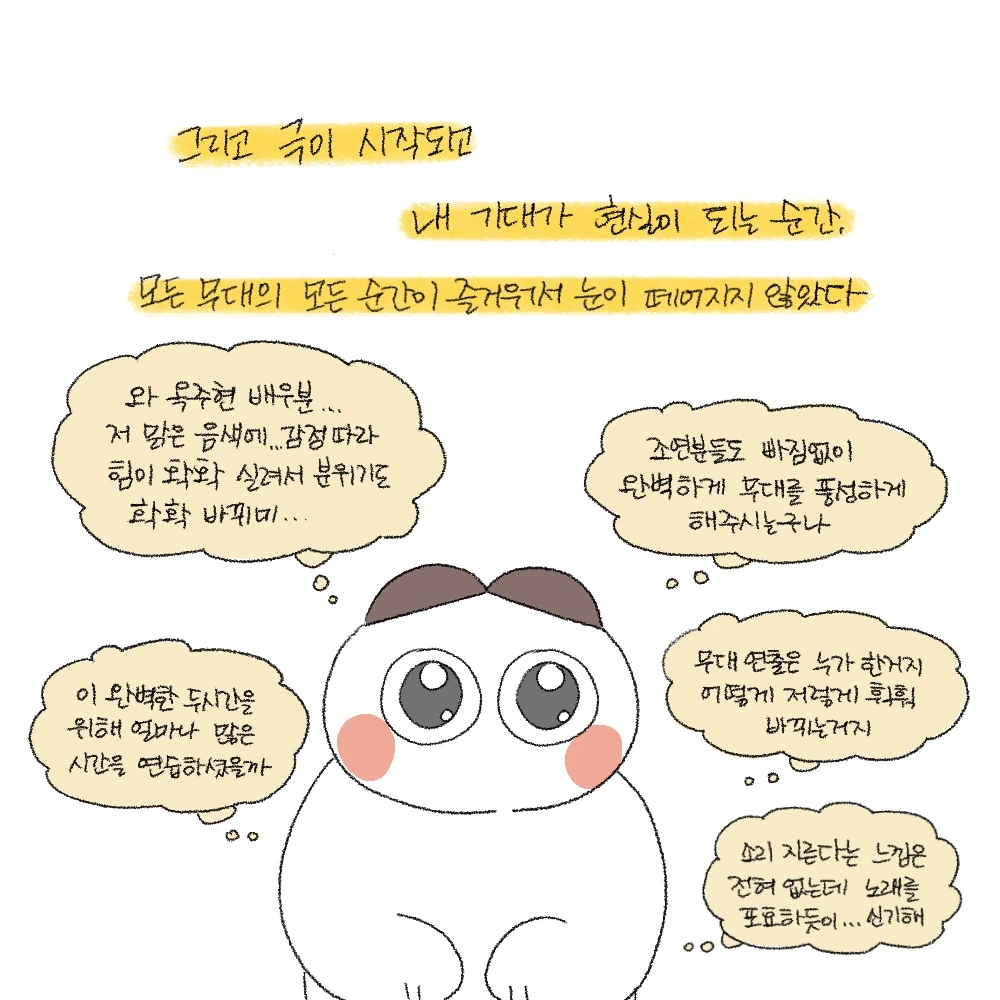 그리고 극이 시작되고
내 기대가 현실이 되는 순간,
모든 무대의 모든 순간이 즐거워서 눈이 떼어지지 않았다
와 옥주현 배우분...
저 맑은 음색에..감정따라
힘이 콱콱 실려서 분위기도
확확 바뀌미...
조연분들도 빠짐없이
완벽하게 무대를 풍성하게
해주시는구나
이 완벽한 두시간을
위해 얼마나 많은
시간을 연습하셨을까
무대 연출은 누가 한거지
어떻게 저렇게 휙휙
바뀌는거지
소리 지른다는 느낌은
전혀 없는데 노래를
포효하듯이...신기해